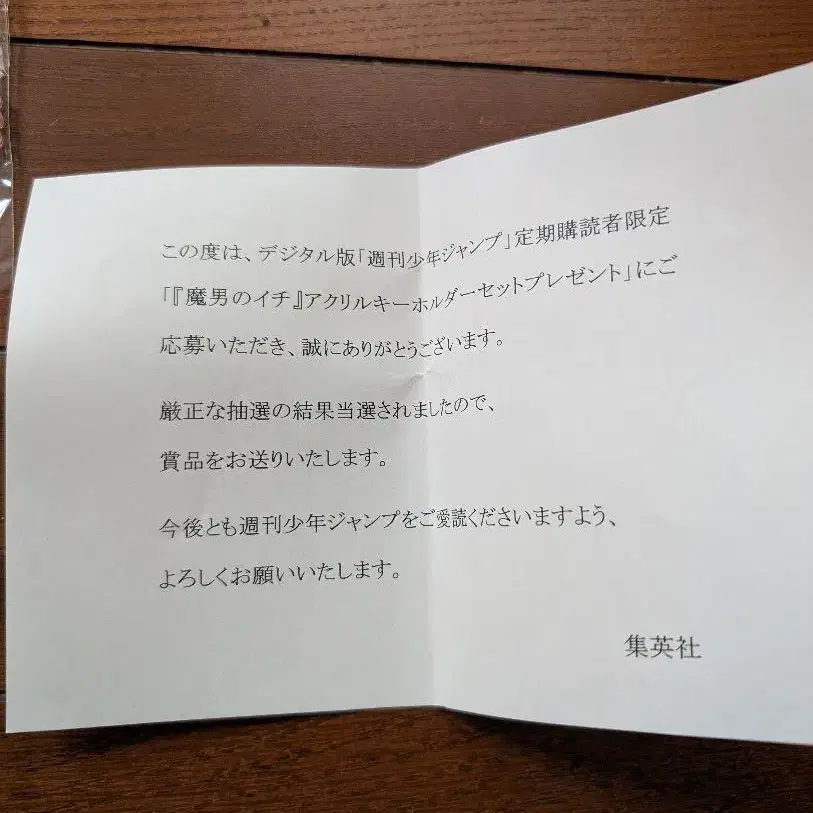 この度は、デジタル版「週刊少年ジャンプ」定期購読者限定
「『魔男のイチ』アクリルキーホルダーセットプレゼント」にご
応募いただき、誠にありがとうございます。
厳正な抽選の結果当選されましたので、
賞品をお送りいたします。
今後とも週刊少年ジャンプをご愛読くださいますよう、
よろしくお願いいたします。
集英社